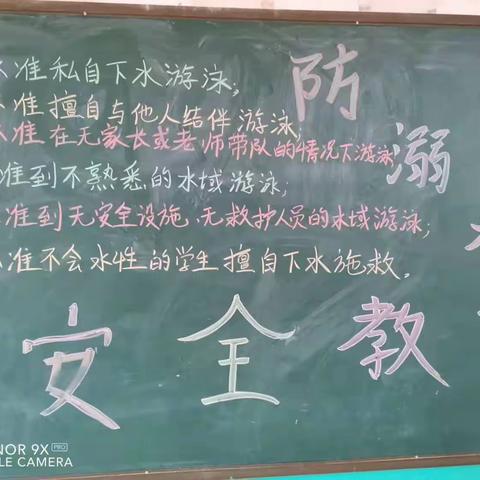 不准私自下水游泳;
不准擅自与他人结伴游泳;
不准在无家长或老师带队的情况下游泳
准到不熟悉的水域游泳;
准到无安全设施、无救护人员的水域游泳;
不准不会水性的学生擅自下水施救。
防
溺
安全教
NOR 9X PRO
LE CAMERA